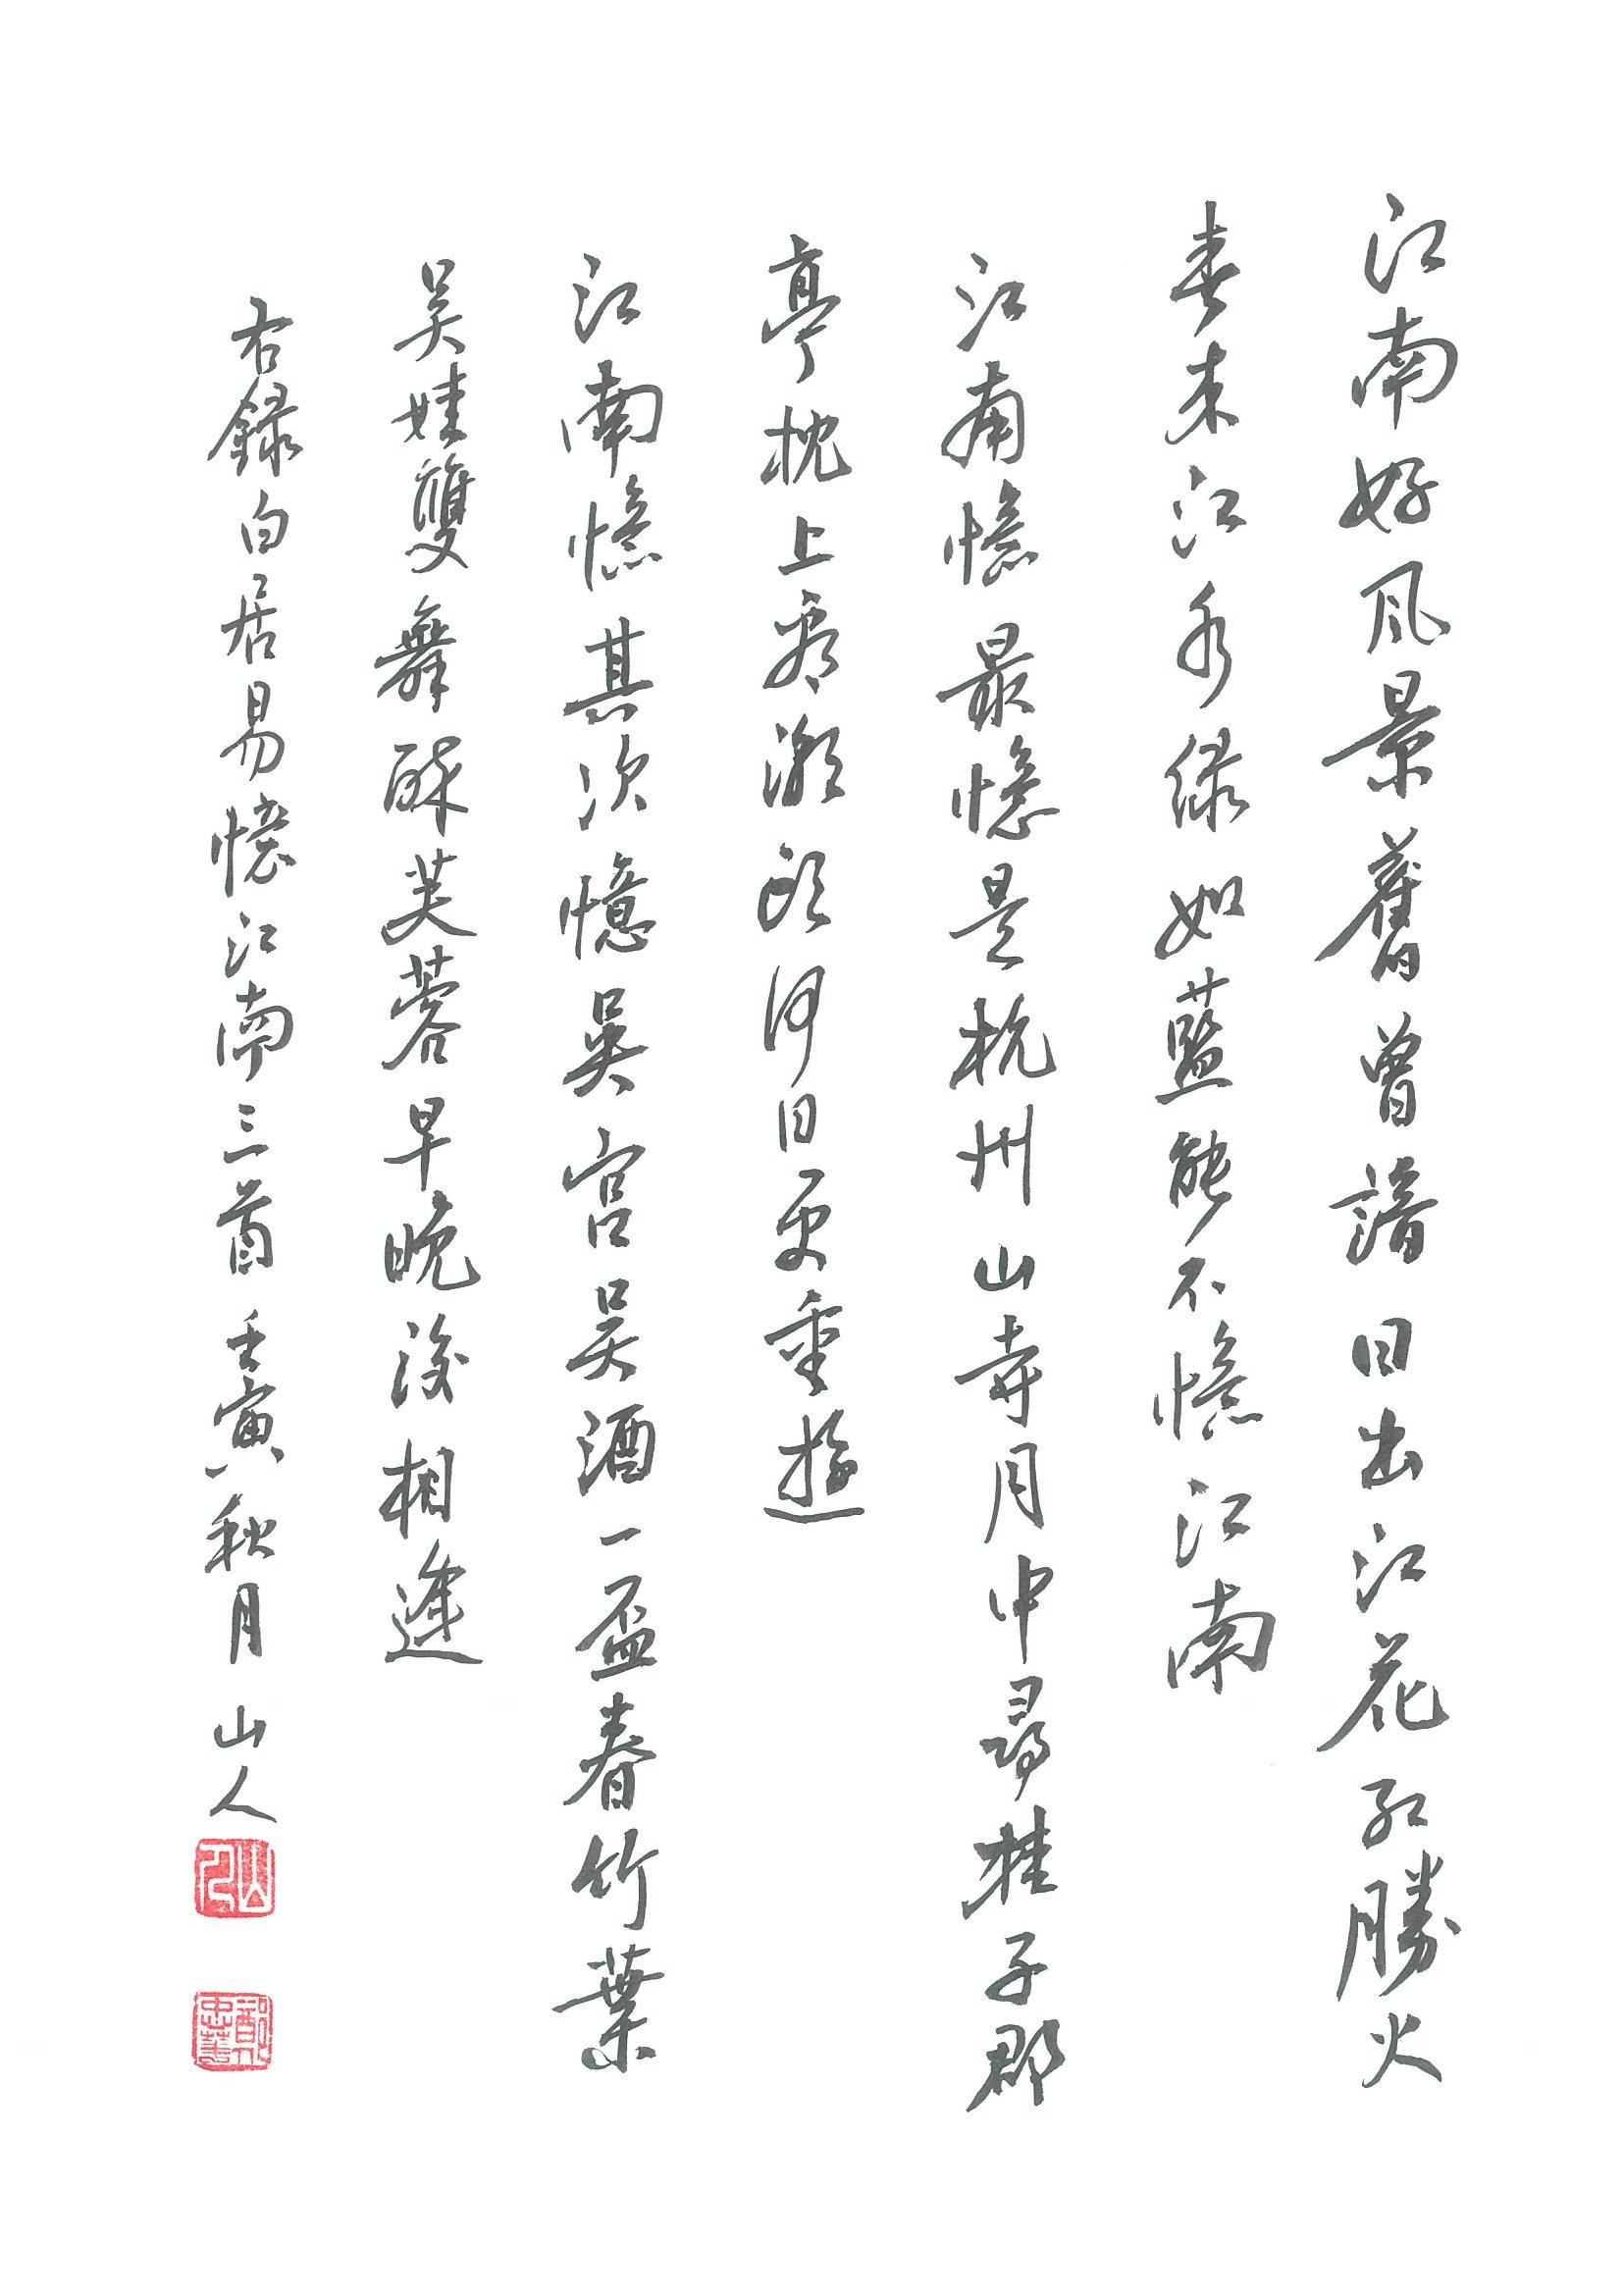 江南好風景舊曾諳日出江花紅勝火
春來江水綠如藍能不憶江南
江南憶最憶是杭州山寺月中尋桂子郡
亭枕上看潮頭何日更重遊
江南憶其次憶吳宮吳酒一盃春竹葉
吳娃雙舞醉芙蓉早晚復相逢
右錄白居易憶江南三首壬寅秋月 山人